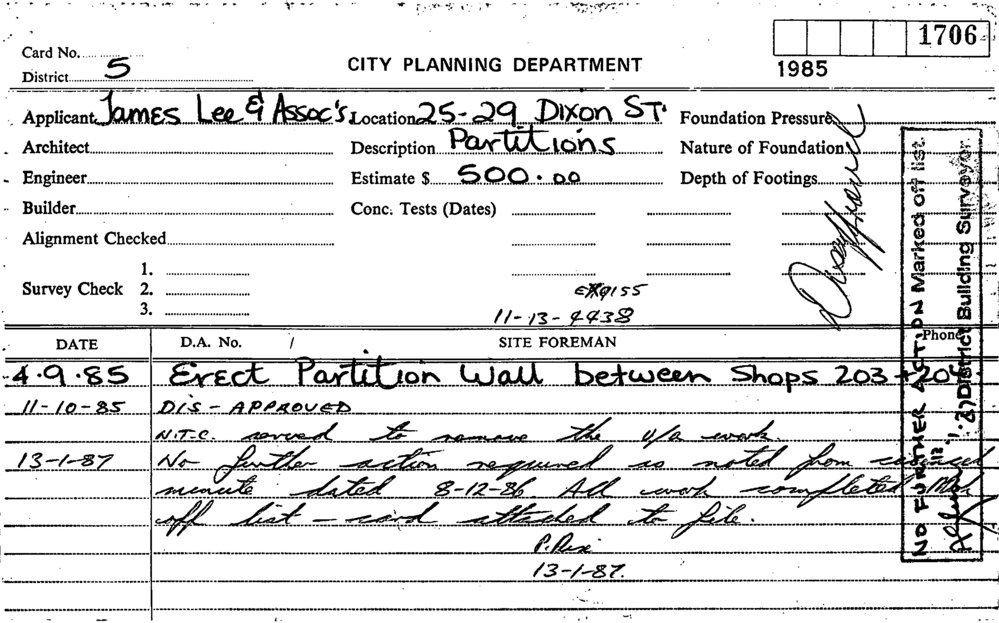 1706
Card No.
District 5
CITY PLANNING DEPARTMENT
1985
Applicant James Lee & Assoc's. Location 25-29 Dixon St. Foundation Pressure
Architect Description Partitions Nature of Foundation
Engineer Estimate $ 500.00 Depth of Footings
Builder Conc. Tests (Dates)
Alignment Checked
1.
Survey Check 2.
3.
11-13-4438
DATE D.A. No. / SITE FOREMAN Phone
4.9.85 Erect Partition Wall between Shops 203 + 204
11-10-85 DIS-APPROVED
N.T.C. served to remove the u/a work.
13-1-87 No further action required as noted from
minute dated 8-12-86 All work completed
off list - card attached to file.
13-1-87.
NO FURTHER ACTION Marked off list.
District Building Surveyor